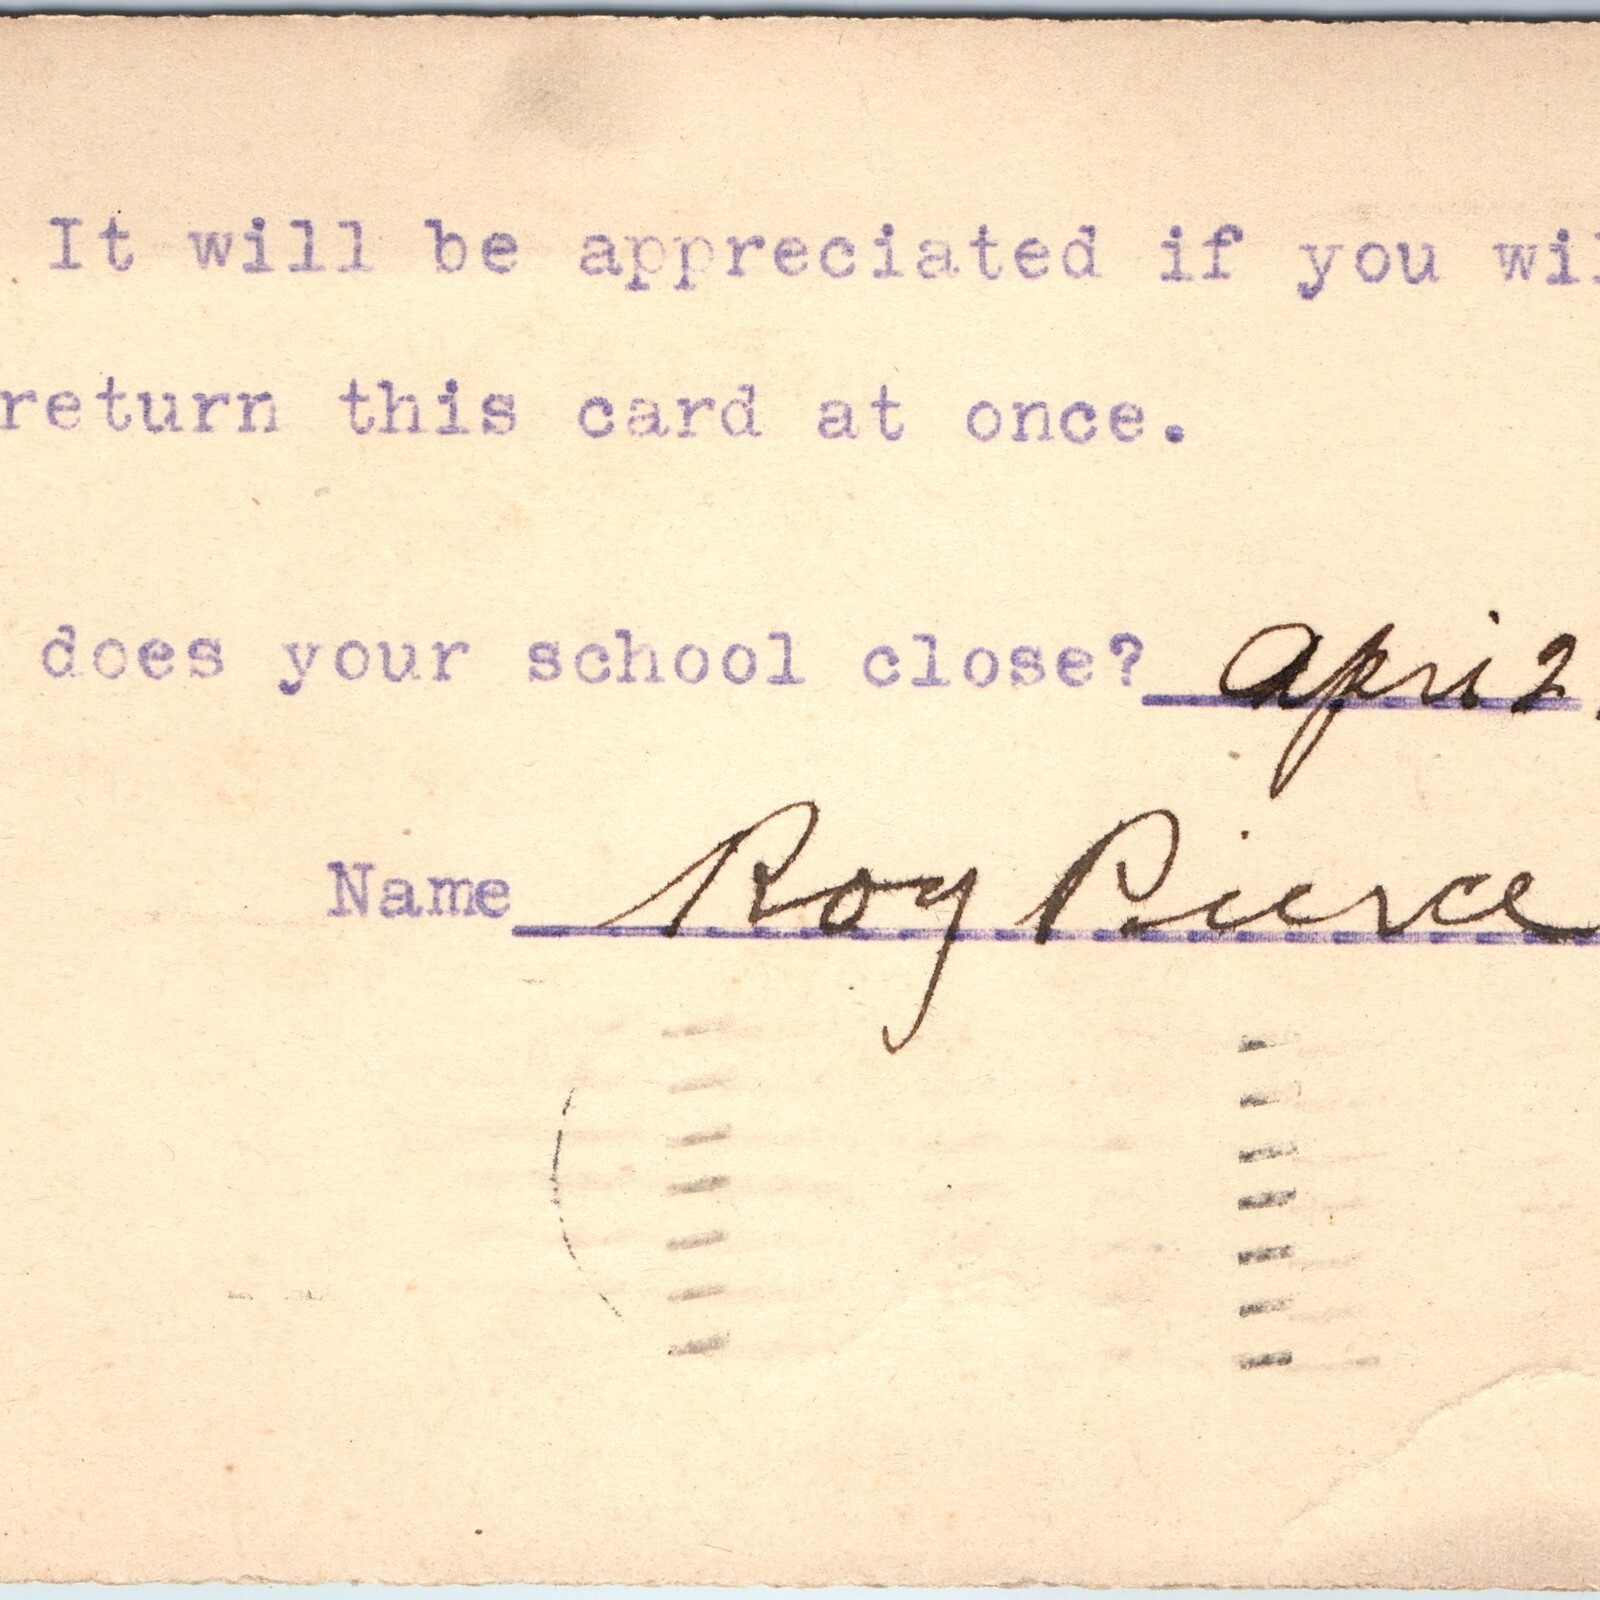 It will be appreciated if you wil
return this card at once.
does your school close? Apri 2
Name Roy Pierce